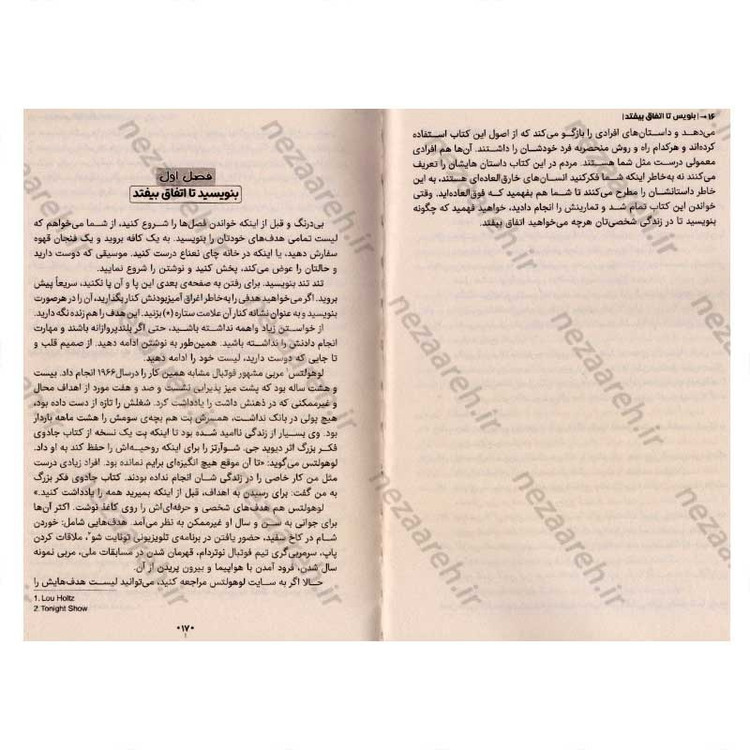 ۱۶ → | بنویس تا اتفاق بیفتد |
می‌دهد و داستان‌های افرادی را بازگو می‌کند که از اصول این کتاب استفاده
کرده‌اند و هرکدام راه و روش منحصربه فرد خودشان را داشتند. آن‌ها هم افرادی
معمولی درست مثل شما هستند. مردم در این کتاب داستان هایشان را تعریف
می‌کنند نه به‌خاطر اینکه شما فکرکنید انسان‌های خارق‌العاده‌ای هستند، به این
خاطر داستانشان را مطرح می‌کنند تا شما هم بفهمید که فوق‌العاده‌اید. وقتی
خواندن این کتاب تمام شد و تمارینش را انجام دادید، خواهید فهمید که چگونه
بنویسید تا در زندگی شخصی‌تان هرچه می‌خواهید اتفاق بیفتد.
فصل اول
بنویسید تا اتفاق بیفتد
بی‌درنگ و قبل از اینکه خواندن فصل‌ها را شروع کنید، از شما می‌خواهم که
لیست تمامی هدف‌های خودتان را بنویسید. به یک کافه بروید و یک فنجان قهوه
سفارش دهید، یا اینکه در خانه چای نعناع درست کنید. موسیقی که دوست دارید
و حالتان را عوض می‌کند، پخش کنید و نوشتن را شروع نمایید.
تند تند بنویسید. برای رفتن به صفحه‌ی بعدی این پا و آن پا نکنید، سریعاً پیش
بروید. اگر می‌خواهید هدفی را به‌خاطر اغراق آمیزبودنش کنار بگذارید، آن را در هرصورت
بنویسید و به عنوان نشانه کنار آن علامت ستاره (*) بزنید. این هدف را هم زنده نگه دارید.
از خواستن زیاد واهمه نداشته باشید، حتی اگر بلندپروازانه باشند و مهارت
انجام دادنش را نداشته باشید. همین‌طور به نوشتن ادامه دهید. از صمیم قلب و
تا جایی که دوست دارید، لیست خود را ادامه دهید.
لوهولتس¹ مربی مشهور فوتبال مشابه همین کار را درسال۱۹۶۶ انجام داد. بیست
و هشت ساله بود که پشت میز پذیرایی نشست و صد و هفت مورد از اهداف محال
و غیرممکنی که در ذهنش داشت را یادداشت کرد. شغلش را تازه از دست داده بود،
هیچ پولی در بانک نداشت، همسرش بت هم بچه‌ی سومش را هشت ماهه باردار
بود. وی بسیار از زندگی ناامید شده بود تا اینکه بت یک نسخه از کتاب جادوی
فکر بزرگ اثر دیوید جی. شوآرتز را برای اینکه روحیه‌اش را حفظ کند به او داد.
لوهولتس می‌گوید: «تا آن موقع هیچ انگیزه‌ای برایم نمانده بود. افراد زیادی درست
مثل من کار خاصی را در زندگی شان انجام نداده بودند. کتاب جادوی فکر بزرگ
به من گفت: برای رسیدن به اهداف، قبل از اینکه بمیرید همه را یادداشت کنید.»
لوهولتس هم هدف‌های شخصی و حرفه‌ای‌اش را روی کاغذ نوشت. اکثر آن‌ها
برای جوانی به سن و سال او غیرممکن به نظر می‌آمد. هدف‌هایی شامل: خوردن
شام در کاخ سفید، حضور یافتن در برنامه‌ی تلویزیونی تونایت شو²، ملاقات کردن
پاپ، سرمربی‌گری تیم فوتبال نوتردام، قهرمان شدن در مسابقات ملی، مربی نمونه
سال شدن، فرود آمدن با هواپیما و بیرون پریدن از آن.
حالا اگر به سایت لوهولتس مراجعه کنید، می‌توانید لیست هدف‌هایش را
1. Lou Holtz
2. Tonight Show
۱۷
nezaareh.ir
nezaareh.ir
nezaareh.ir
nezaareh.ir
nezaareh.ir
nezaareh.ir
nezaareh.ir
nezaareh.ir